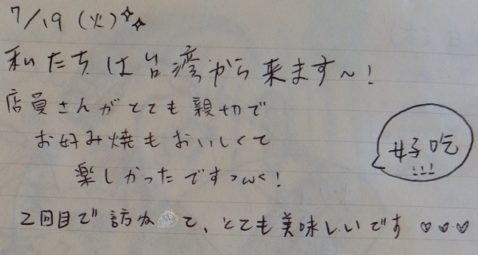 7/19 (火)
私たちは台湾から来ます~!
店員さんがとても親切で
お好み焼もおいしくて
楽しかったです!
好吃!!!
2回目で訪 て、とても美味しいです ♡♡♡